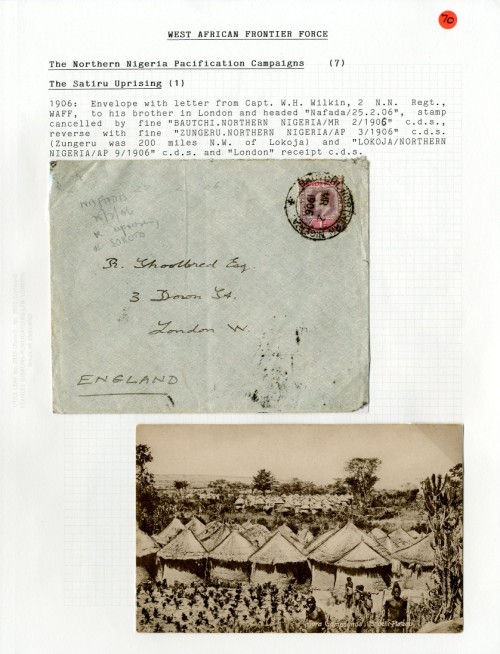 70
WEST AFRICAN FRONTIER FORCE
The Northern Nigeria Pacification Campaigns (7)
The Satiru Uprising (1)
1906: Envelope with letter from Capt. W.H. Wilkin, 2 N.N. Regt.,
WAFF, to his brother in London and headed "Nafada/25.2.06", stamp
cancelled by fine "BAUTCHI.NORTHERN NIGERIA/MR 2/1906" c.d.s.,
reverse with fine "ZUNGERU.NORTHERN NIGERIA/AP 3/1906" c.d.s.
(Zungeru was 200 miles N.W. of Lokoja) and "LOKOJA/NORTHERN
NIGERIA/AP 9/1906" c.d.s. and "London" receipt c.d.s.
R. Shoolbred Esq.
3 Down St.
London W.
ENGLAND